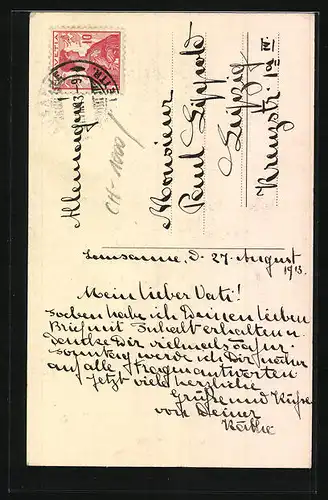 Allemagne
CH-1000
Monsieur
Paul Lippold
Leipzig
Kreuzstr. 19 IV.
Lausanne, d. 27. August
1913.
Mein lieber Vati!
soeben habe ich Deinen lieben
Brief mit Inhalt erhalten u.
danke Dir vielmals dafür.
sonntag werde ich Dir näher
auf alle Fragen antworten.
Jetzt viele herzliche
Grüße und Küsse
von Deiner
Käthe